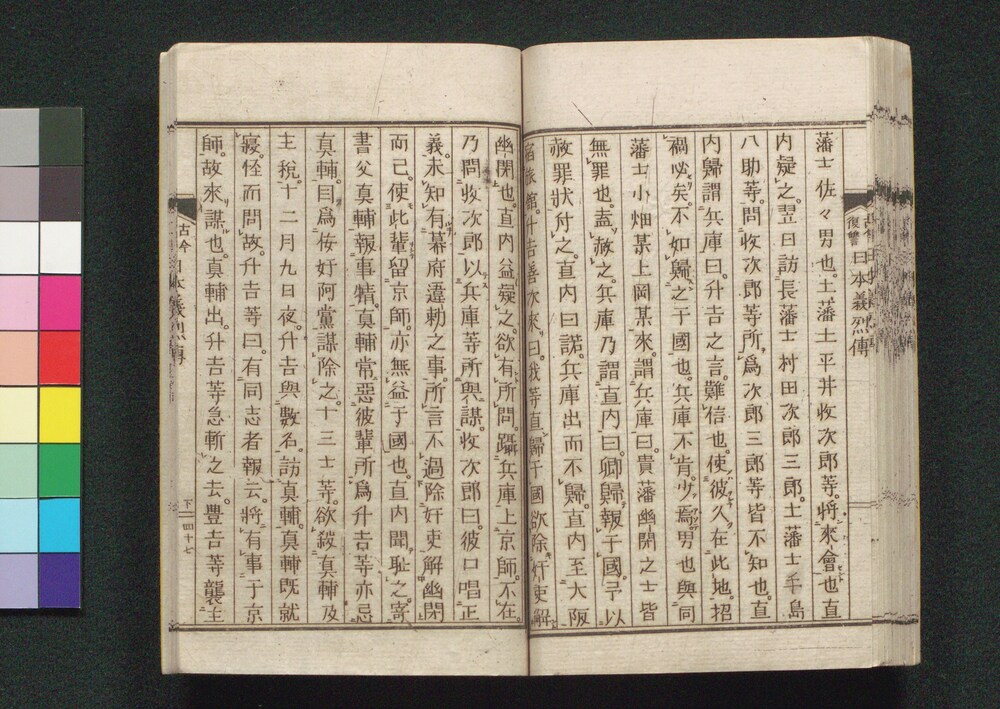 藩士佐々男也。土藩士平井收次郎等。將來會也直
内疑之。翌日訪長藩士村田次郎三郎。土藩士千島
八助等。問收次郎等所爲次郎三郎等皆不知也。直
内歸謂兵庫曰。升吉之言。難信也。使彼久在此地。招
禍必矣。不如歸之于國也。兵庫不肯。少焉男也與同
藩士小畑某上岡某來。謂兵庫曰。貴藩幽閉之士皆
無罪也。盍赦之。兵庫乃謂直内曰。卿歸報于國。予以
赦罪狀付之。直内曰諾。兵庫出而不歸。直内至大阪
宿旅館。升吉善次來曰。我等直歸于國欲除奸吏解
幽閉也。直内益疑之。欲有所問。躡兵庫上京師。不在
乃問收次郎以兵庫等所與謀。收次郎曰。彼口唱正
義。未知有幕府違勅之事。所言不過除奸吏解幽閉
而已。使此輩留京師。亦無益于國也。直内聞耻之。寄
書父真輔報事情。真輔常惡彼輩所爲升吉等亦忌
真輔。目爲佞奸阿黨謀除之。十三士等。欲殺真輔及
主税。十二月九日夜。升吉與數名。訪真輔。真輔既就
寢。怪而問故。升吉等曰。有同志者報云。將有事于京
師。故來謀也。真輔出。升吉等急斬之去。豊吉等襲主
古今
復讐
日本義烈傳
古今日本義烈傳
下
四十七